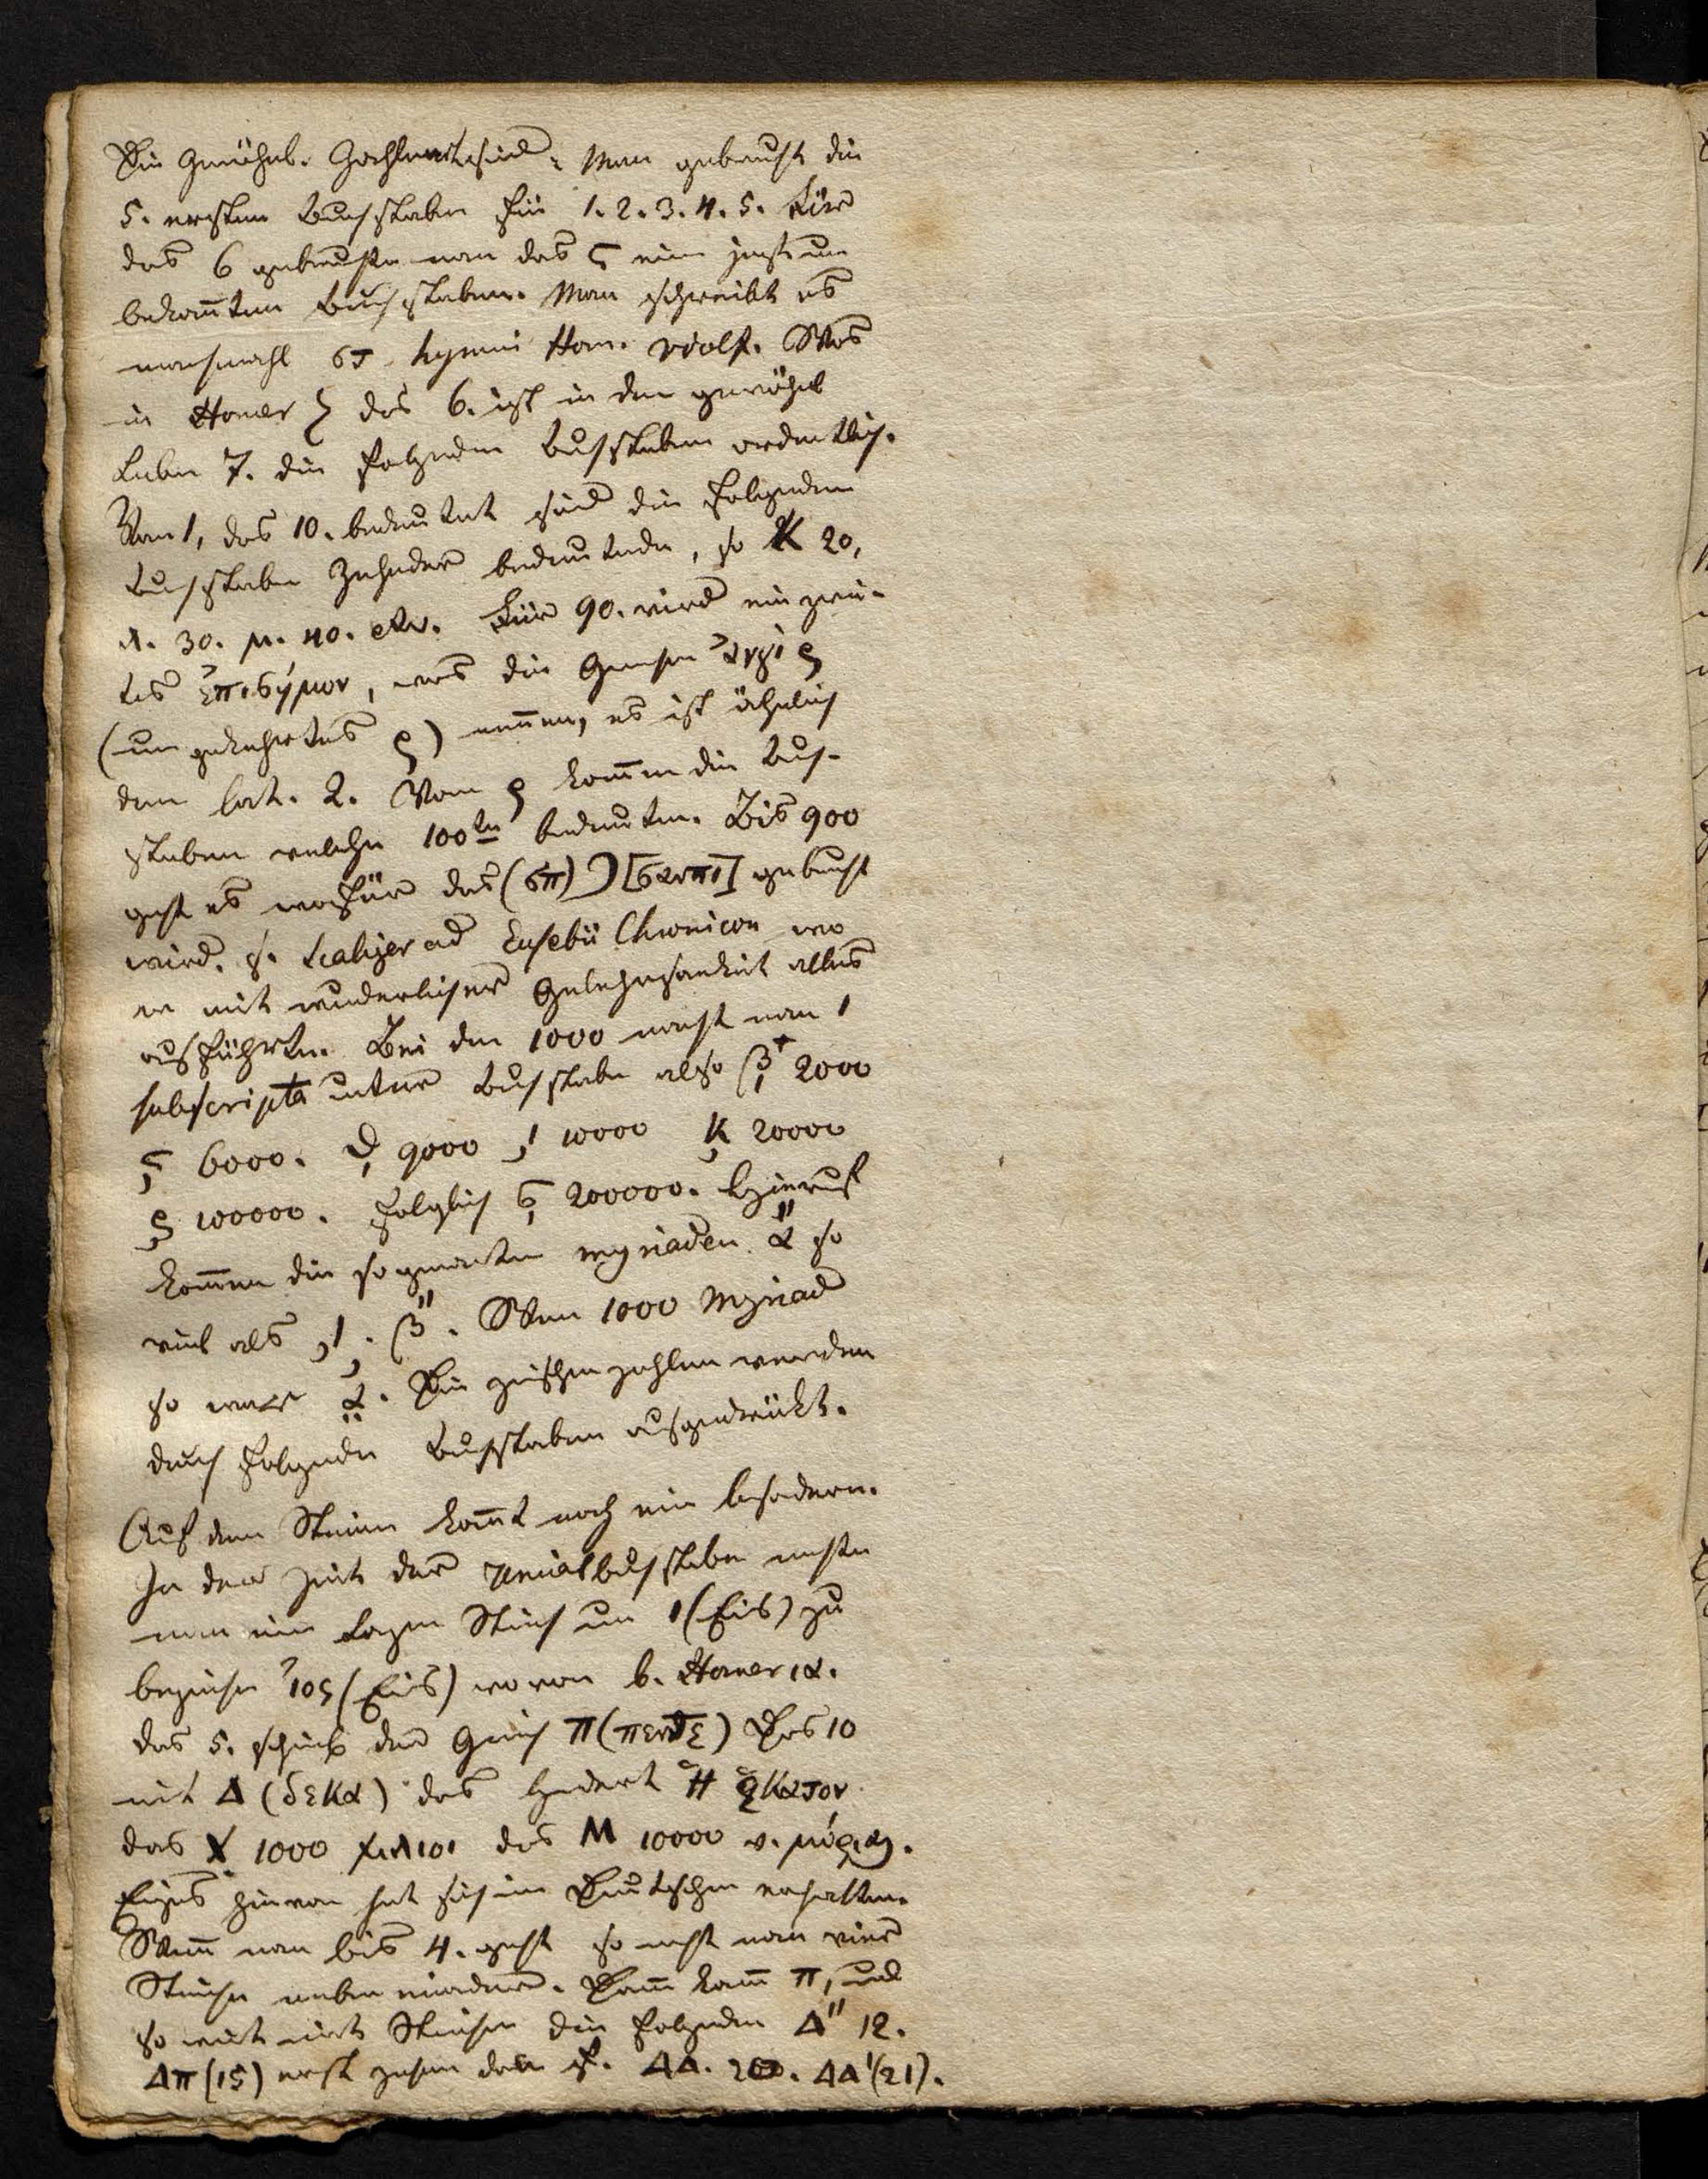 Die gewöhnl. Zahlart sind: Man gebraucht die
5. ersten Buchstaben für 1. 2. 3. 4. 5. Für
das 6 gebrauchte man das ϛ ein jezt un
bekañten Buchstaben. Man schreibt es
manchmahl στ hymni Hom. Wolf. Was
in Homer ζ das 6. ist in den gewöhnl
Leben 7. die folgenden Buchstaben ordentlich.
Von ι, das 10. bedeutet sind die folgenden
Buchstaben Zehender bedeutende, so K 20,
λ. 30. μ. 40. etc. Für 90. wird ein zwei-
tes ἐπισήμον, was die Griechen ἀντὶ ϙ
(umgekehrtes ϙ) neñen, es ist ähnlich
dem lat. Q. Vom ρ kom̃en die Buch-
staben welche 100te bedeuten. Bis 900
geht es wofür das (σπ) ϡ [σανπι] gebraucht
wird. s. Scaliger ad Eusebii Chronicon wo
er mit wunderlicher Gelehrsamkeit alles
ausführte. Bei den 1000 macht man ι
subscripta unter Buchstaben also β 2000
ϛ 6000. θ 9000 ι 10000 κ 20000
ρ 100000. Folglich σ 200000. Hierauf
kom̃en die sogenañten myriaden. α̎ so
viel als ͵ι. β̎. Wenn 1000 Myriad
so war α̤. Die zwischenzahlen werden
durch folgende Buchstaben ausgedrückt.
Auf den Steinen kom̃t noch ein besondern.
In der Zeit der Uncialbuchstaben machte
man ein Strich um 1 (Eis) zu
bezeichnen ἰος (Eis) wovon b. Homer ια.
das 5. schrieb der Griech π (πεντε) Das 10
mit Δ (δεκα) das hundert Ἡ ἑκατον
das X 1000 χιλιοι das M 10000 v. μύριοι.
hievon hat sich im Deutschen erhalten.
Weñ man bis 4. geht so macht man vier
Striche neben einander. Dañ kom̃t π, und
so weit mit Strichen die folgenden Δ" 12.
Δπ (15) erst zehen dañ 5. ΔΔ. 20. ΔΔ' (21).